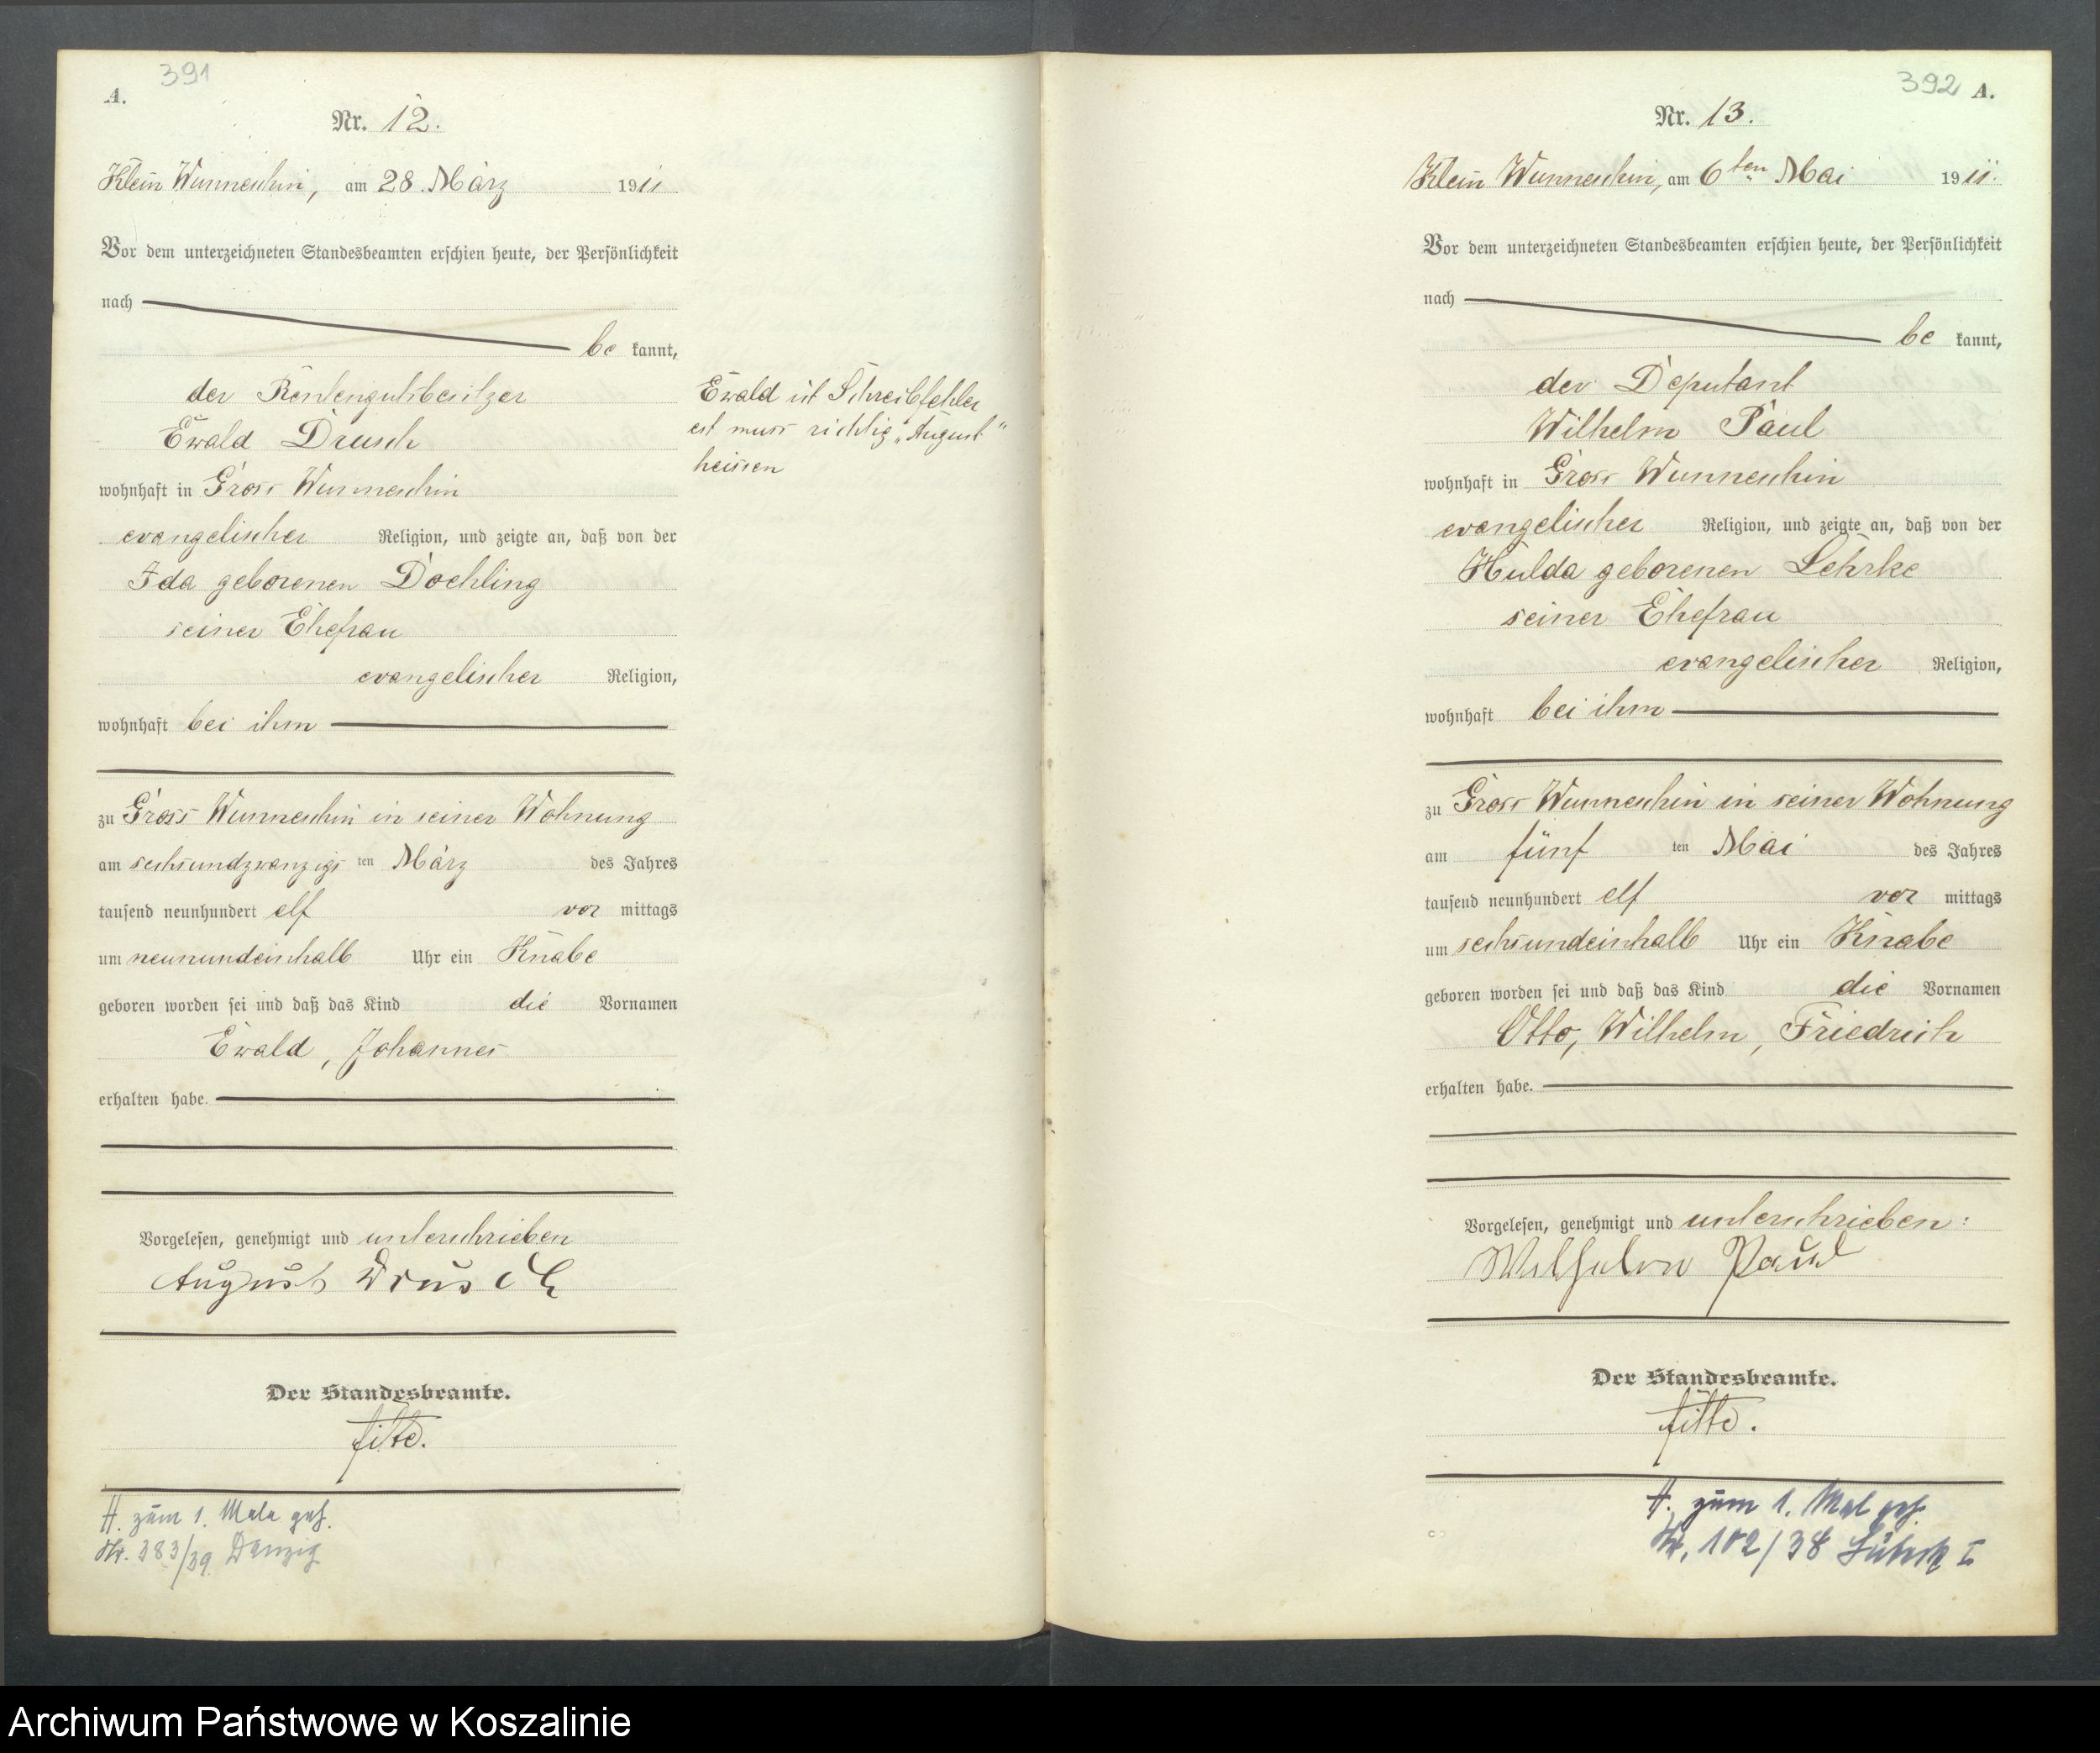 391
A.
Nr. 12.
Klein Wunneschin, am 28. März 1911
Vor dem unterzeichneten Standesbeamten erschien heute, der Persönlichkeit
nach
be kannt,
der Rentengutsbesitzer
Ewald Drusch
wohnhaft in Gross Wunneschin
evangelischer Religion, und zeigte an, daß von der
Ida geborenen Doehling
seiner Ehefrau
evangelischer Religion,
wohnhaft bei ihm
zu Gross Wunneschin in seiner Wohnung
am sechsundzwanzigs ten März des Jahres
tausend neunhundert elf vor mittags
um neunundeinhalb Uhr ein Knabe
geboren worden sei und daß das Kind die Vornamen
Ewald, Johannes
erhalten habe.
Vorgelesen, genehmigt und unterschrieben
August Drusch
Der Standesbeamte.
A. zum 1. Male geh.
Nr. 383/39 Danzig
Ewald ist Schreibfehler
est muss richtig "August"
heissen
392 A.
Nr. 13.
Klein Wunneschin, am 6ten Mai 1911.
Vor dem unterzeichneten Standesbeamten erschien heute, der Persönlichkeit
nach
be kannt,
der Deputant
Wilhelm Paul
wohnhaft in Gross Wunneschin
evangelischer Religion, und zeigte an, daß von der
Hulda geborenen Lehrke
seiner Ehefrau
evangelischer Religion,
wohnhaft bei ihm
zu Gross Wunneschin in seiner Wohnung
am fünf ten Mai des Jahres
tausend neunhundert elf vor mittags
um sechsundeinhalb Uhr ein Knabe
geboren worden sei und daß das Kind die Vornamen
Otto, Wilhelm, Friedrich
erhalten habe.
Vorgelesen, genehmigt und unterschrieben:
Wilhelm Paul
Der Standesbeamte.
A. zum 1. Mal geh.
Nr. 102/38 Lübeck I
Archiwum Państwowe w Koszalinie